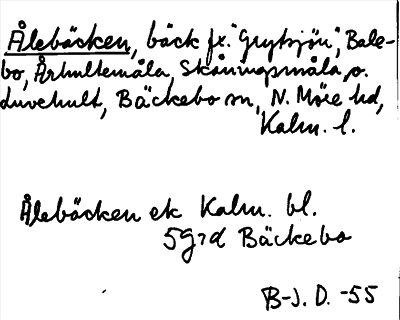 Ålebäcken, bäck fr. "Grytsjön", Bale-
bo, Århultemåla, Skäningsmåla, o.
Duvehult, Bäckebo sn, N. Möre hd,
Kalm. l.
Ålebäcken ek Kalm. bl.
5g7d Bäckebo
B-J. D. -55